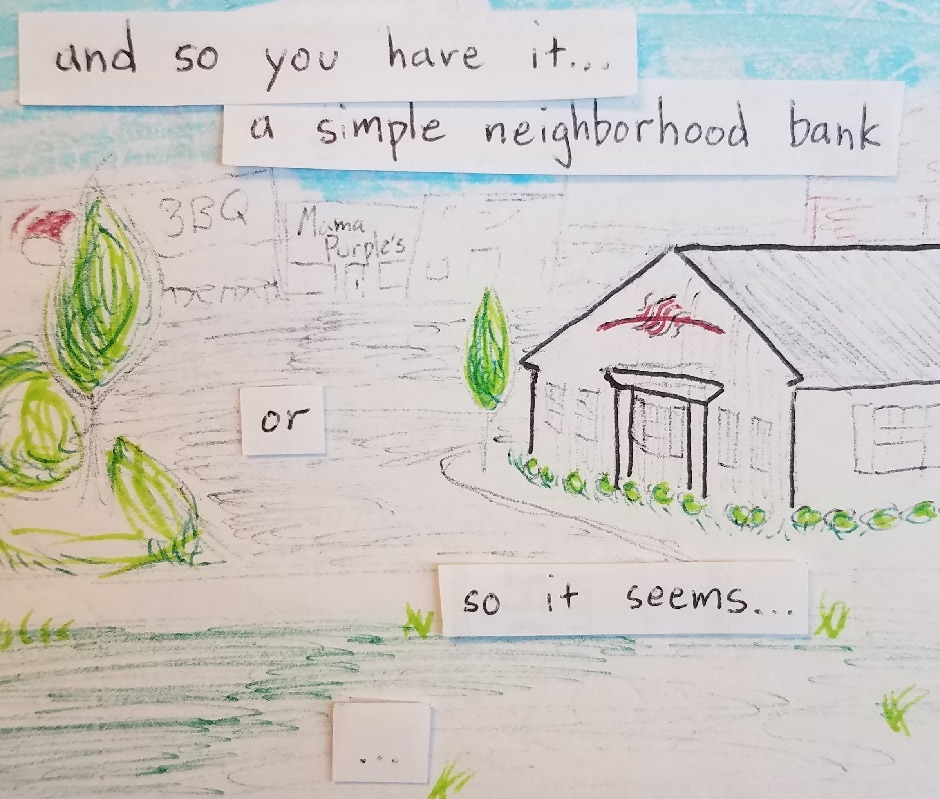 and so you have it...
a simple neighborhood bank
BBQ
Mama
Purple's
or
so it seems...
...